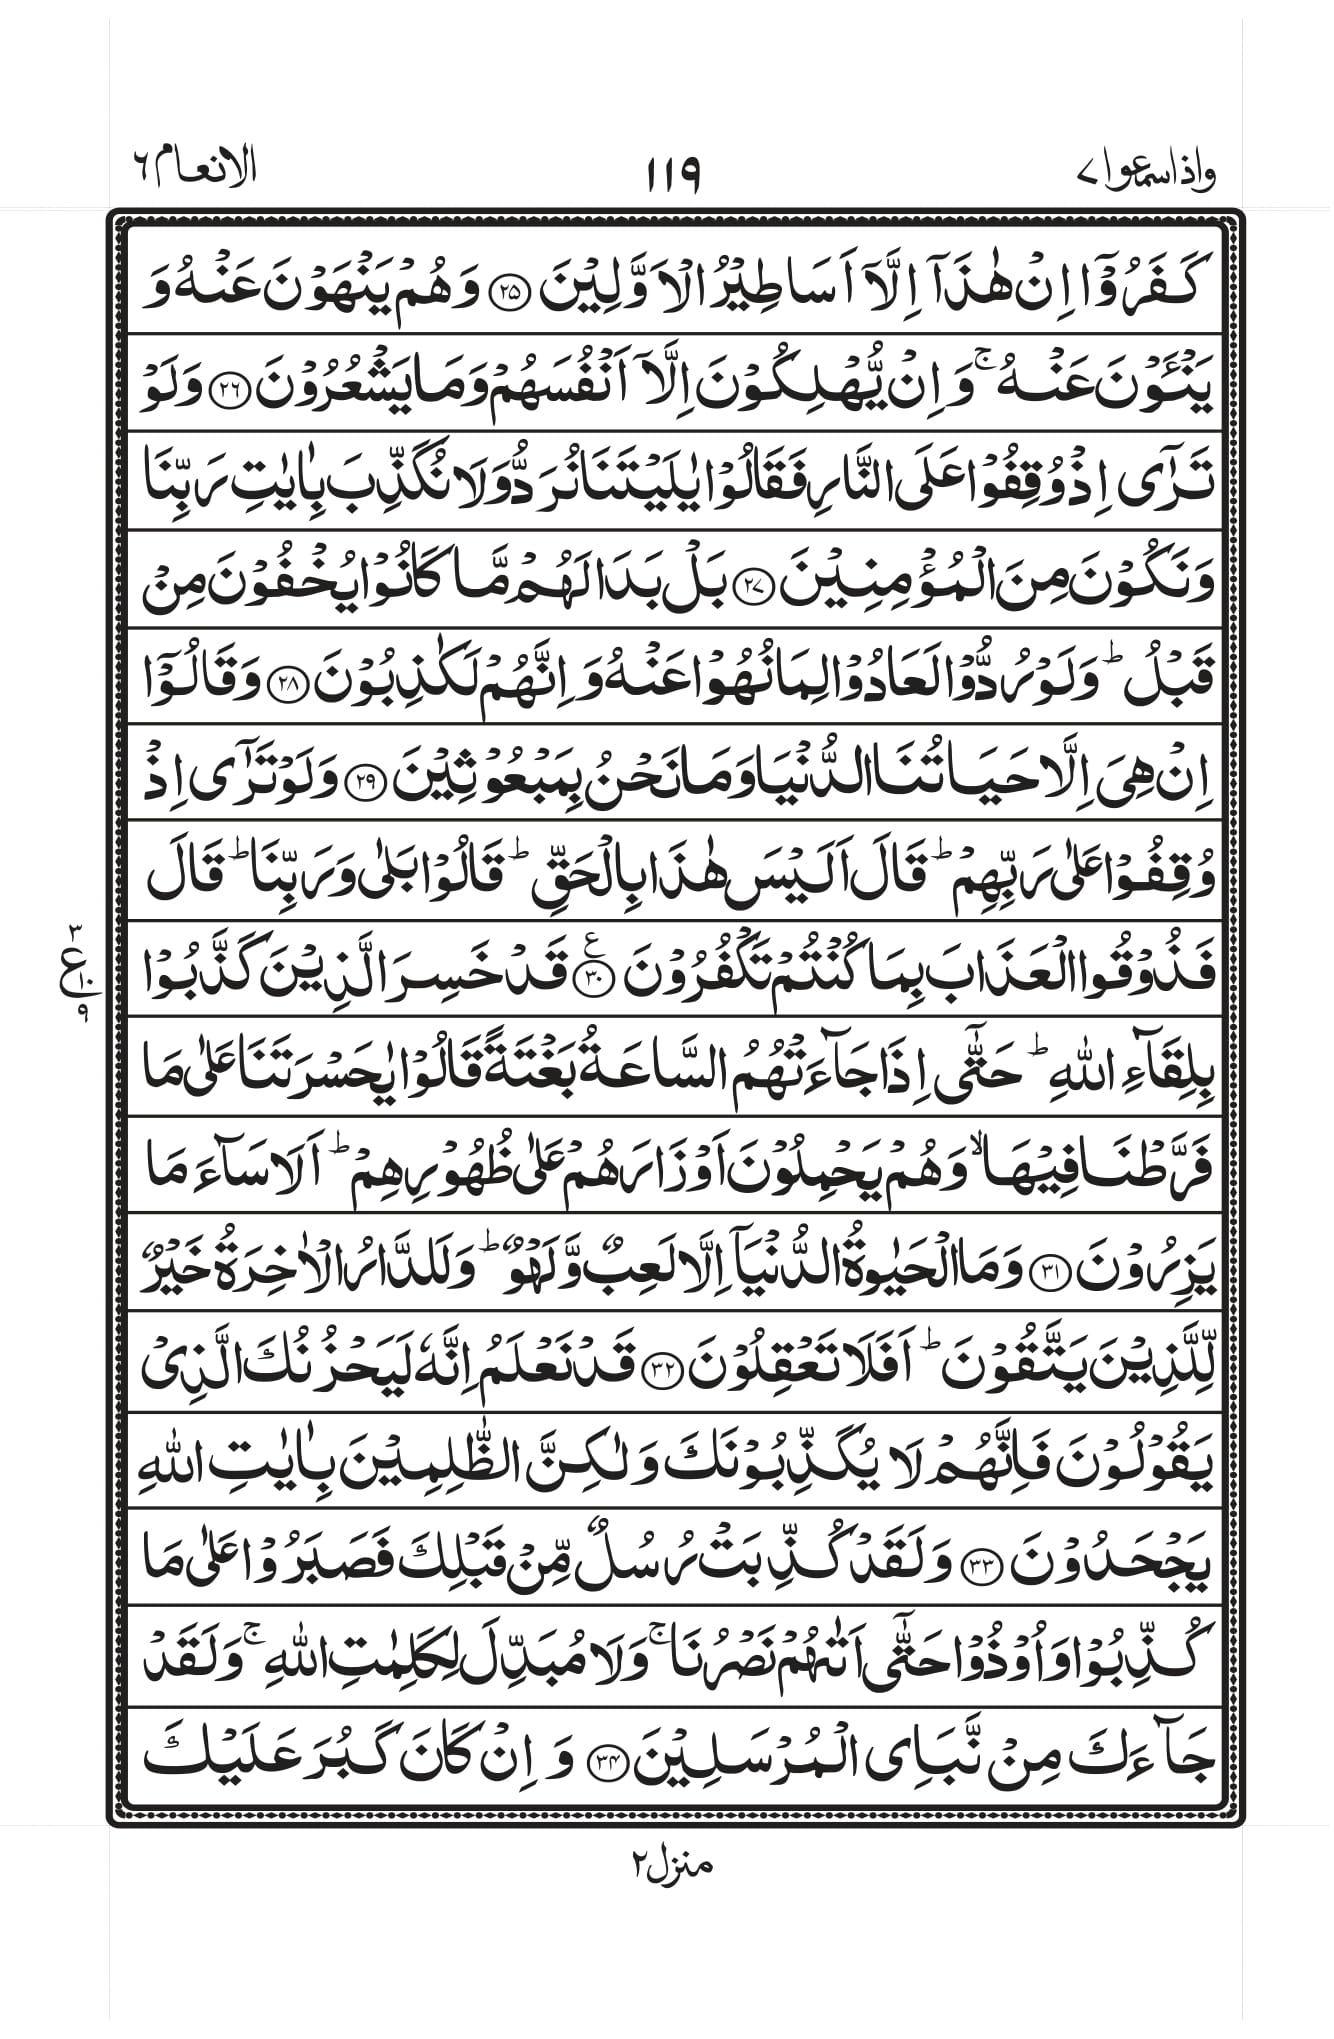 واذاسمعوا ٧ ١١٩ الانعام ٦
كَفَرُوْۤا اِنْ هٰذَاۤ اِلَّاۤ اَسَاطِیْرُ الْاَوَّلِیْنَ ﴿۲۵﴾ وَهُمْ یَنْهَوْنَ عَنْهُ وَ
یَنْـَٔوْنَ عَنْهُ ۚ وَ اِنْ یُّهْلِكُوْنَ اِلَّاۤ اَنْفُسَهُمْ وَمَا یَشْعُرُوْنَ ﴿۲۶﴾ وَلَوْ
تَرٰۤی اِذْ وُقِفُوْا عَلَی النَّارِ فَقَالُوْا یٰلَیْتَنَا نُرَدُّ وَلَا نُكَذِّبَ بِاٰیٰتِ رَبِّنَا
وَنَكُوْنَ مِنَ الْمُؤْمِنِیْنَ ﴿۲۷﴾ بَلْ بَدَا لَهُمْ مَّا كَانُوْا یُخْفُوْنَ مِنْ
قَبْلُ ؕ وَلَوْ رُدُّوْا لَعَادُوْا لِمَا نُهُوْا عَنْهُ وَ اِنَّهُمْ لَكٰذِبُوْنَ ﴿۲۸﴾ وَقَالُوْۤا
اِنْ هِیَ اِلَّا حَیَاتُنَا الدُّنْیَا وَمَا نَحْنُ بِمَبْعُوْثِیْنَ ﴿۲۹﴾ وَلَوْ تَرٰۤی اِذْ
وُقِفُوْا عَلٰی رَبِّهِمْ ؕ قَالَ اَلَیْسَ هٰذَا بِالْحَقِّ ؕ قَالُوْا بَلٰی وَرَبِّنَا ؕ قَالَ
فَذُوْقُوا الْعَذَابَ بِمَا كُنْتُمْ تَكْفُرُوْنَ ﴿۳۰﴾ ع قَدْ خَسِرَ الَّذِیْنَ كَذَّبُوْا
۳ ع ۱۰ ۹
بِلِقَآءِ اللّٰهِ ؕ حَتّٰۤی اِذَا جَآءَتْهُمُ السَّاعَةُ بَغْتَةً قَالُوْا یٰحَسْرَتَنَا عَلٰی مَا
فَرَّطْنَا فِیْهَا ۙ وَهُمْ یَحْمِلُوْنَ اَوْزَارَهُمْ عَلٰی ظُهُوْرِهِمْ ؕ اَلَا سَآءَ مَا
یَزِرُوْنَ ﴿۳۱﴾ وَمَا الْحَیٰوةُ الدُّنْیَاۤ اِلَّا لَعِبٌ وَّلَهْوٌ ؕ وَلَلدَّارُ الْاٰخِرَةُ خَیْرٌ
لِّلَّذِیْنَ یَتَّقُوْنَ ؕ اَفَلَا تَعْقِلُوْنَ ﴿۳۲﴾ قَدْ نَعْلَمُ اِنَّهٗ لَیَحْزُنُكَ الَّذِیْ
یَقُوْلُوْنَ فَاِنَّهُمْ لَا یُكَذِّبُوْنَكَ وَلٰكِنَّ الظّٰلِمِیْنَ بِاٰیٰتِ اللّٰهِ
یَجْحَدُوْنَ ﴿۳۳﴾ وَلَقَدْ كُذِّبَتْ رُسُلٌ مِّنْ قَبْلِكَ فَصَبَرُوْا عَلٰی مَا
كُذِّبُوْا وَاُوْذُوْا حَتّٰۤی اَتٰىهُمْ نَصْرُنَا ۚ وَلَا مُبَدِّلَ لِكَلِمٰتِ اللّٰهِ ۚ وَلَقَدْ
جَآءَكَ مِنْ نَّبَاِی الْمُرْسَلِیْنَ ﴿۳۴﴾ وَ اِنْ كَانَ كَبُرَ عَلَیْكَ
منزل ۲